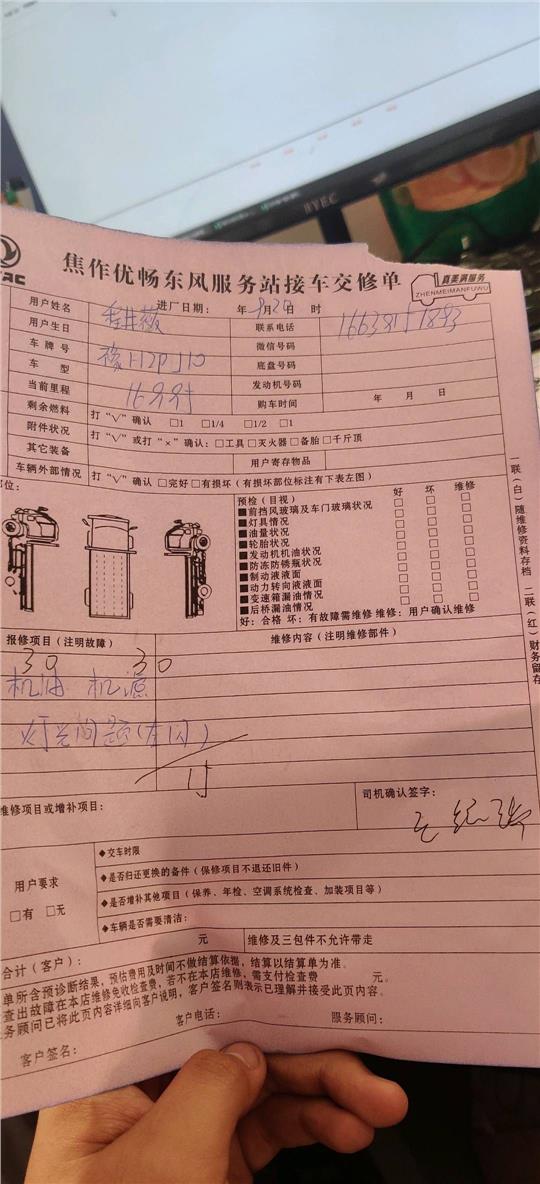 焦作优畅东风服务站接车交修单
真美满服务
ZHENMEIMANFUWU
进厂日期： 年 9月20 时
用户姓名 联系电话
用户生日 微信号码
车牌号 底盘号码
车 型 发动机号码
当前里程 购车时间 年 月 日
剩余燃料 打“√”确认 □1 □1/4 □1/2 □1
附件状况 打“√”或打“×”确认：□工具□灭火器□备胎□千斤顶
其它装备 用户寄存物品
车辆外部情况 打“√”确认□完好□有损坏（有损坏部位标注有下表左图）
部位：
预检（目视） 好 坏 维修
■前挡风玻璃及车门玻璃状况 □ □ □
■灯具情况 □ □ □
■油量状况 □ □ □
■轮胎状况 □ □ □
■发动机机油状况 □ □ □
■防冻防锈瓶状况 □ □ □
■制动液液面 □ □ □
■动力转向液液面 □ □ □
■变速箱漏油情况 □ □ □
■后桥漏油情况 □ □ □
好：合格 坏：有故障需维修 维修：用户确认维修
一联（白）随维修资料存档 二联（红）财务留存
报修项目（注明故障） 维修内容（注明维修部件）
30 30
机油 机滤
灯光问题(左闪)
维修项目或增补项目： 司机确认签字：
用户要求
□有 □无
◆交车时限
◆是否归还更换的备件（保修项目不退还旧件）
◆是否增补其他项目（保养、年检、空调系统检查、加装项目等）
◆车辆是否需要清洁：
合计（客户）： 元 维修及三包件不允许带走
单所含预诊断结果，预估费用及时间不做结算依据，结算以结算单为准。
查出故障在本店维修免收检查费，若不在本店维修，需支付检查费 元。
务顾问已将此页内容详细向客户说明，客户签名则表示已理解并接受此页内容。
客户签名： 客户电话： 服务顾问：